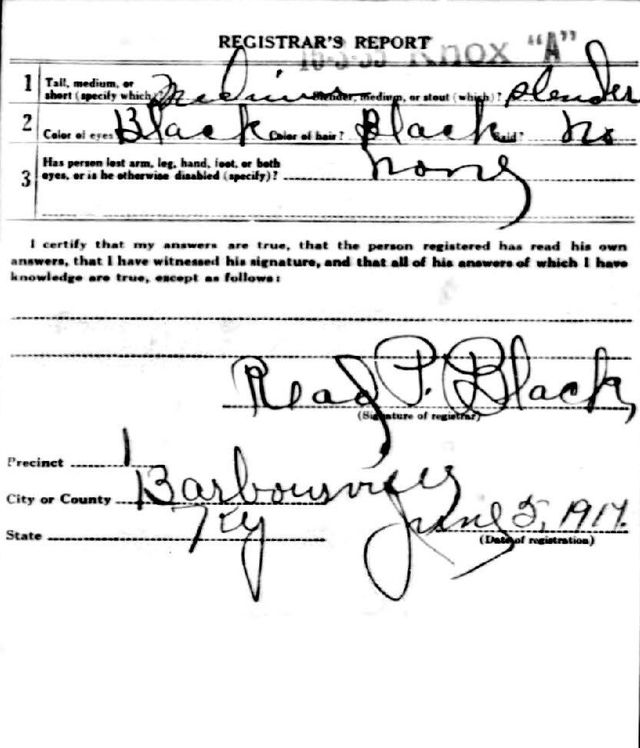 REGISTRAR'S REPORT
16-3-35 Knox "A"
1 Tall, medium, or short (specify which)? Medium Slender, medium, or stout (which)? slender
2 Color of eyes? Black Color of hair? Black Bald? no
3 Has person lost arm, leg, hand, foot, or both
eyes, or is he otherwise disabled (specify)? none
I certify that my answers are true, that the person registered has read his own
answers, that I have witnessed his signature, and that all of his answers of which I have
knowledge are true, except as follows:
Read P. Black,
(Signature of registrar)
Precinct 1
City or County Barbourville
State Ky June 5, 1917.
(Date of registration)